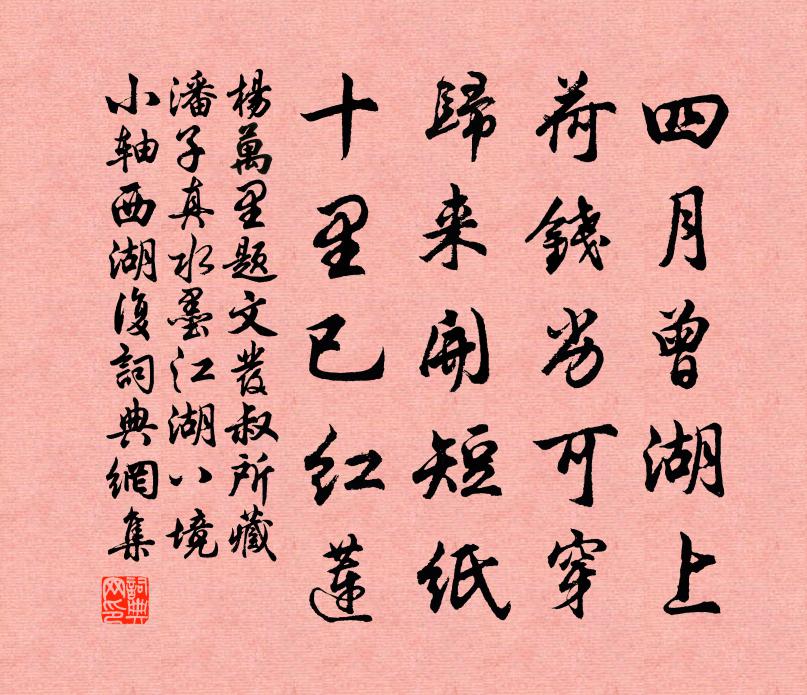 四月曾湖上
荷錢劣可穿
歸来開短紙
十里已红蓮
楊萬里题文發叔所藏
潘子真水墨江湖八境
小轴西湖復詞典網集
詞典網印